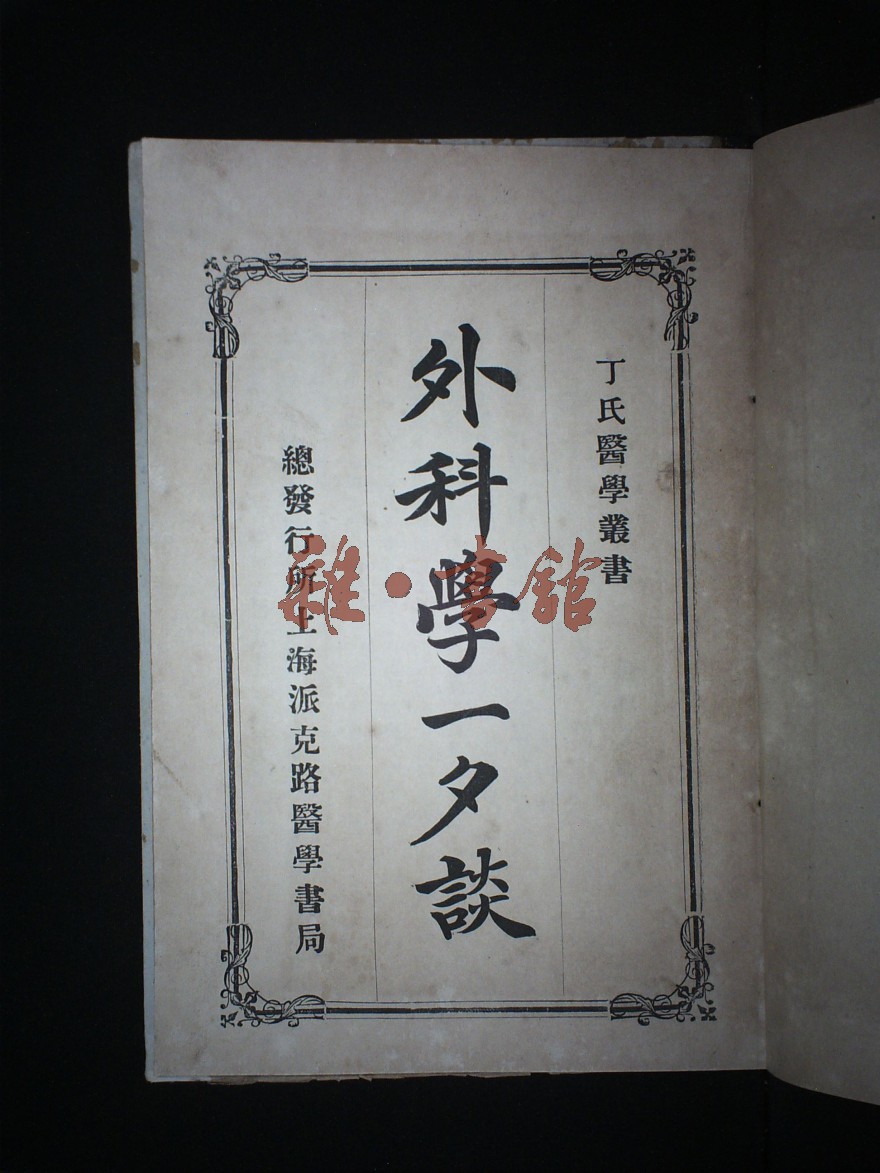 丁氏醫學叢書
外科學一夕談
總發行所上海派克路醫學書局
雜·書館